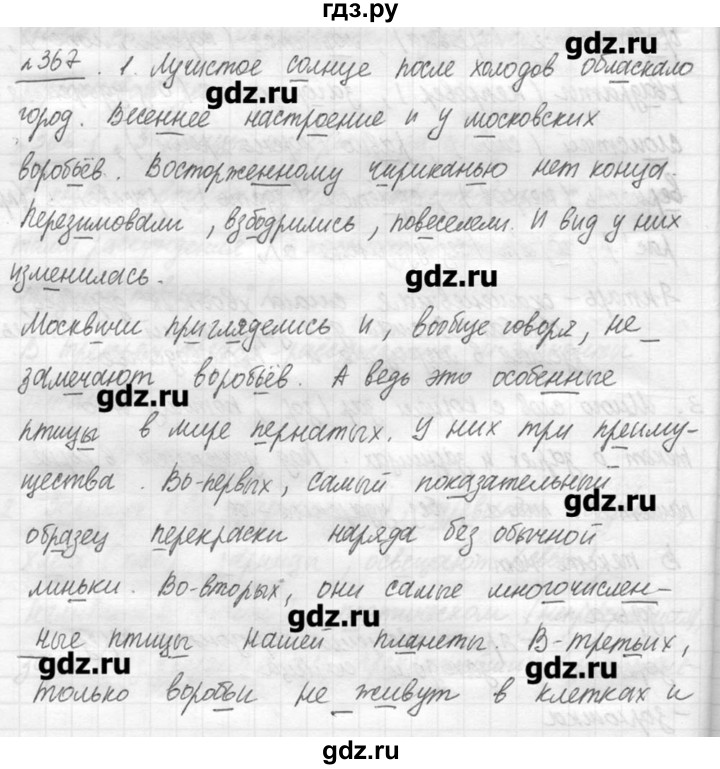 гдз.ру
gdz.ru
№367. 1. Лучистое солнце после холодов обласкало
gdz.ru
город. Весеннее настроение и у московских
воробьёв. Восторженному чириканью нет конца.
Перезимовали, взбодрились, повеселели. И вид у них
изменилась.
gdz.ru
Москвичи пригляделись и, вообще говоря, не_
замечают воробьёв. А ведь это особенные
gdz.ru
птицы в мире пернатых. У них три преиму-
щества. Во-первых, самый показательный
gdz.ru
образец перекраски наряда без обычной
линьки. Во-вторых, они самые многочислен-
gdz.ru
ные птицы нашей планеты. В-третьих,
gdz.ru gdz.ru
только воробьи не_живут в клетках и
gdz.ru